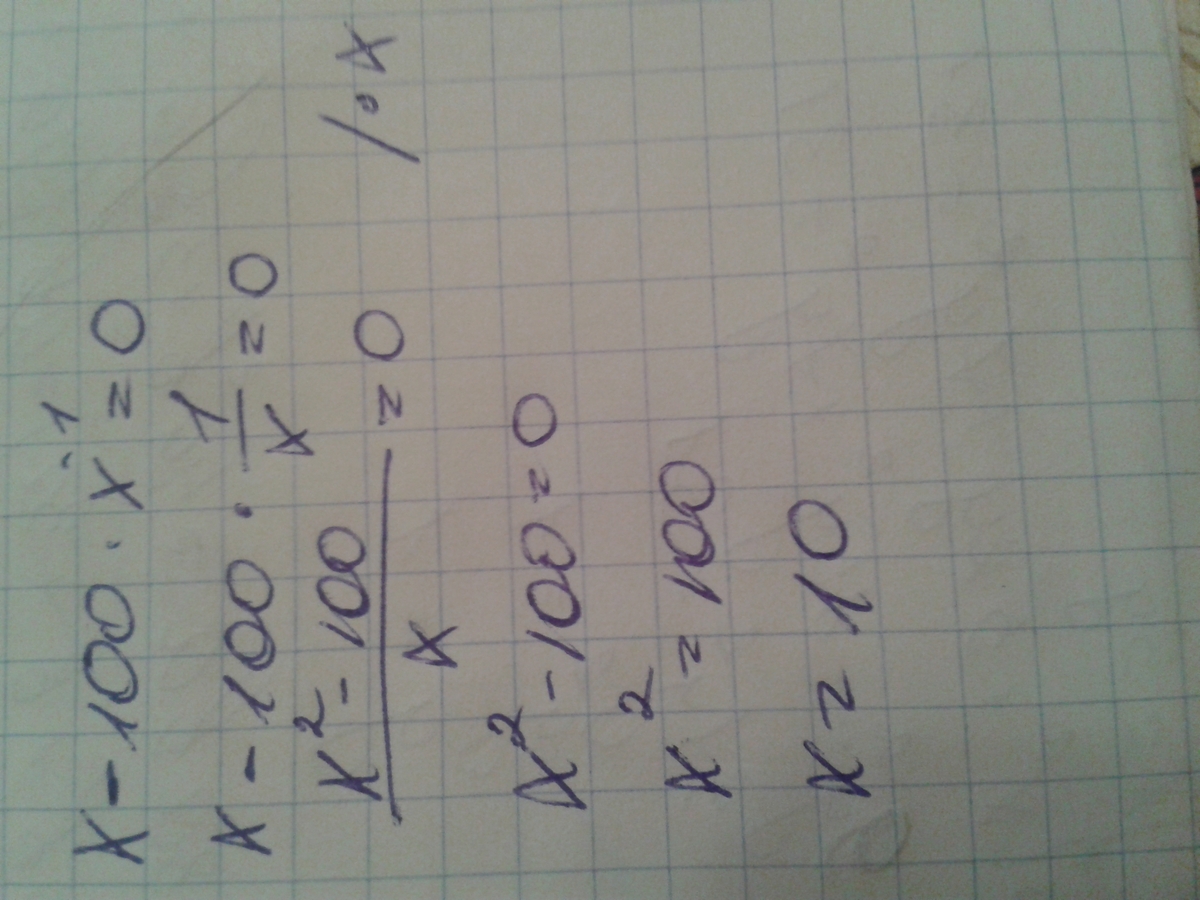 x - 100 · x⁻¹ = 0
x - 100 · 1/x = 0
(x² - 100)/x = 0 /·x
x² - 100 = 0
x² = 100
x = 10